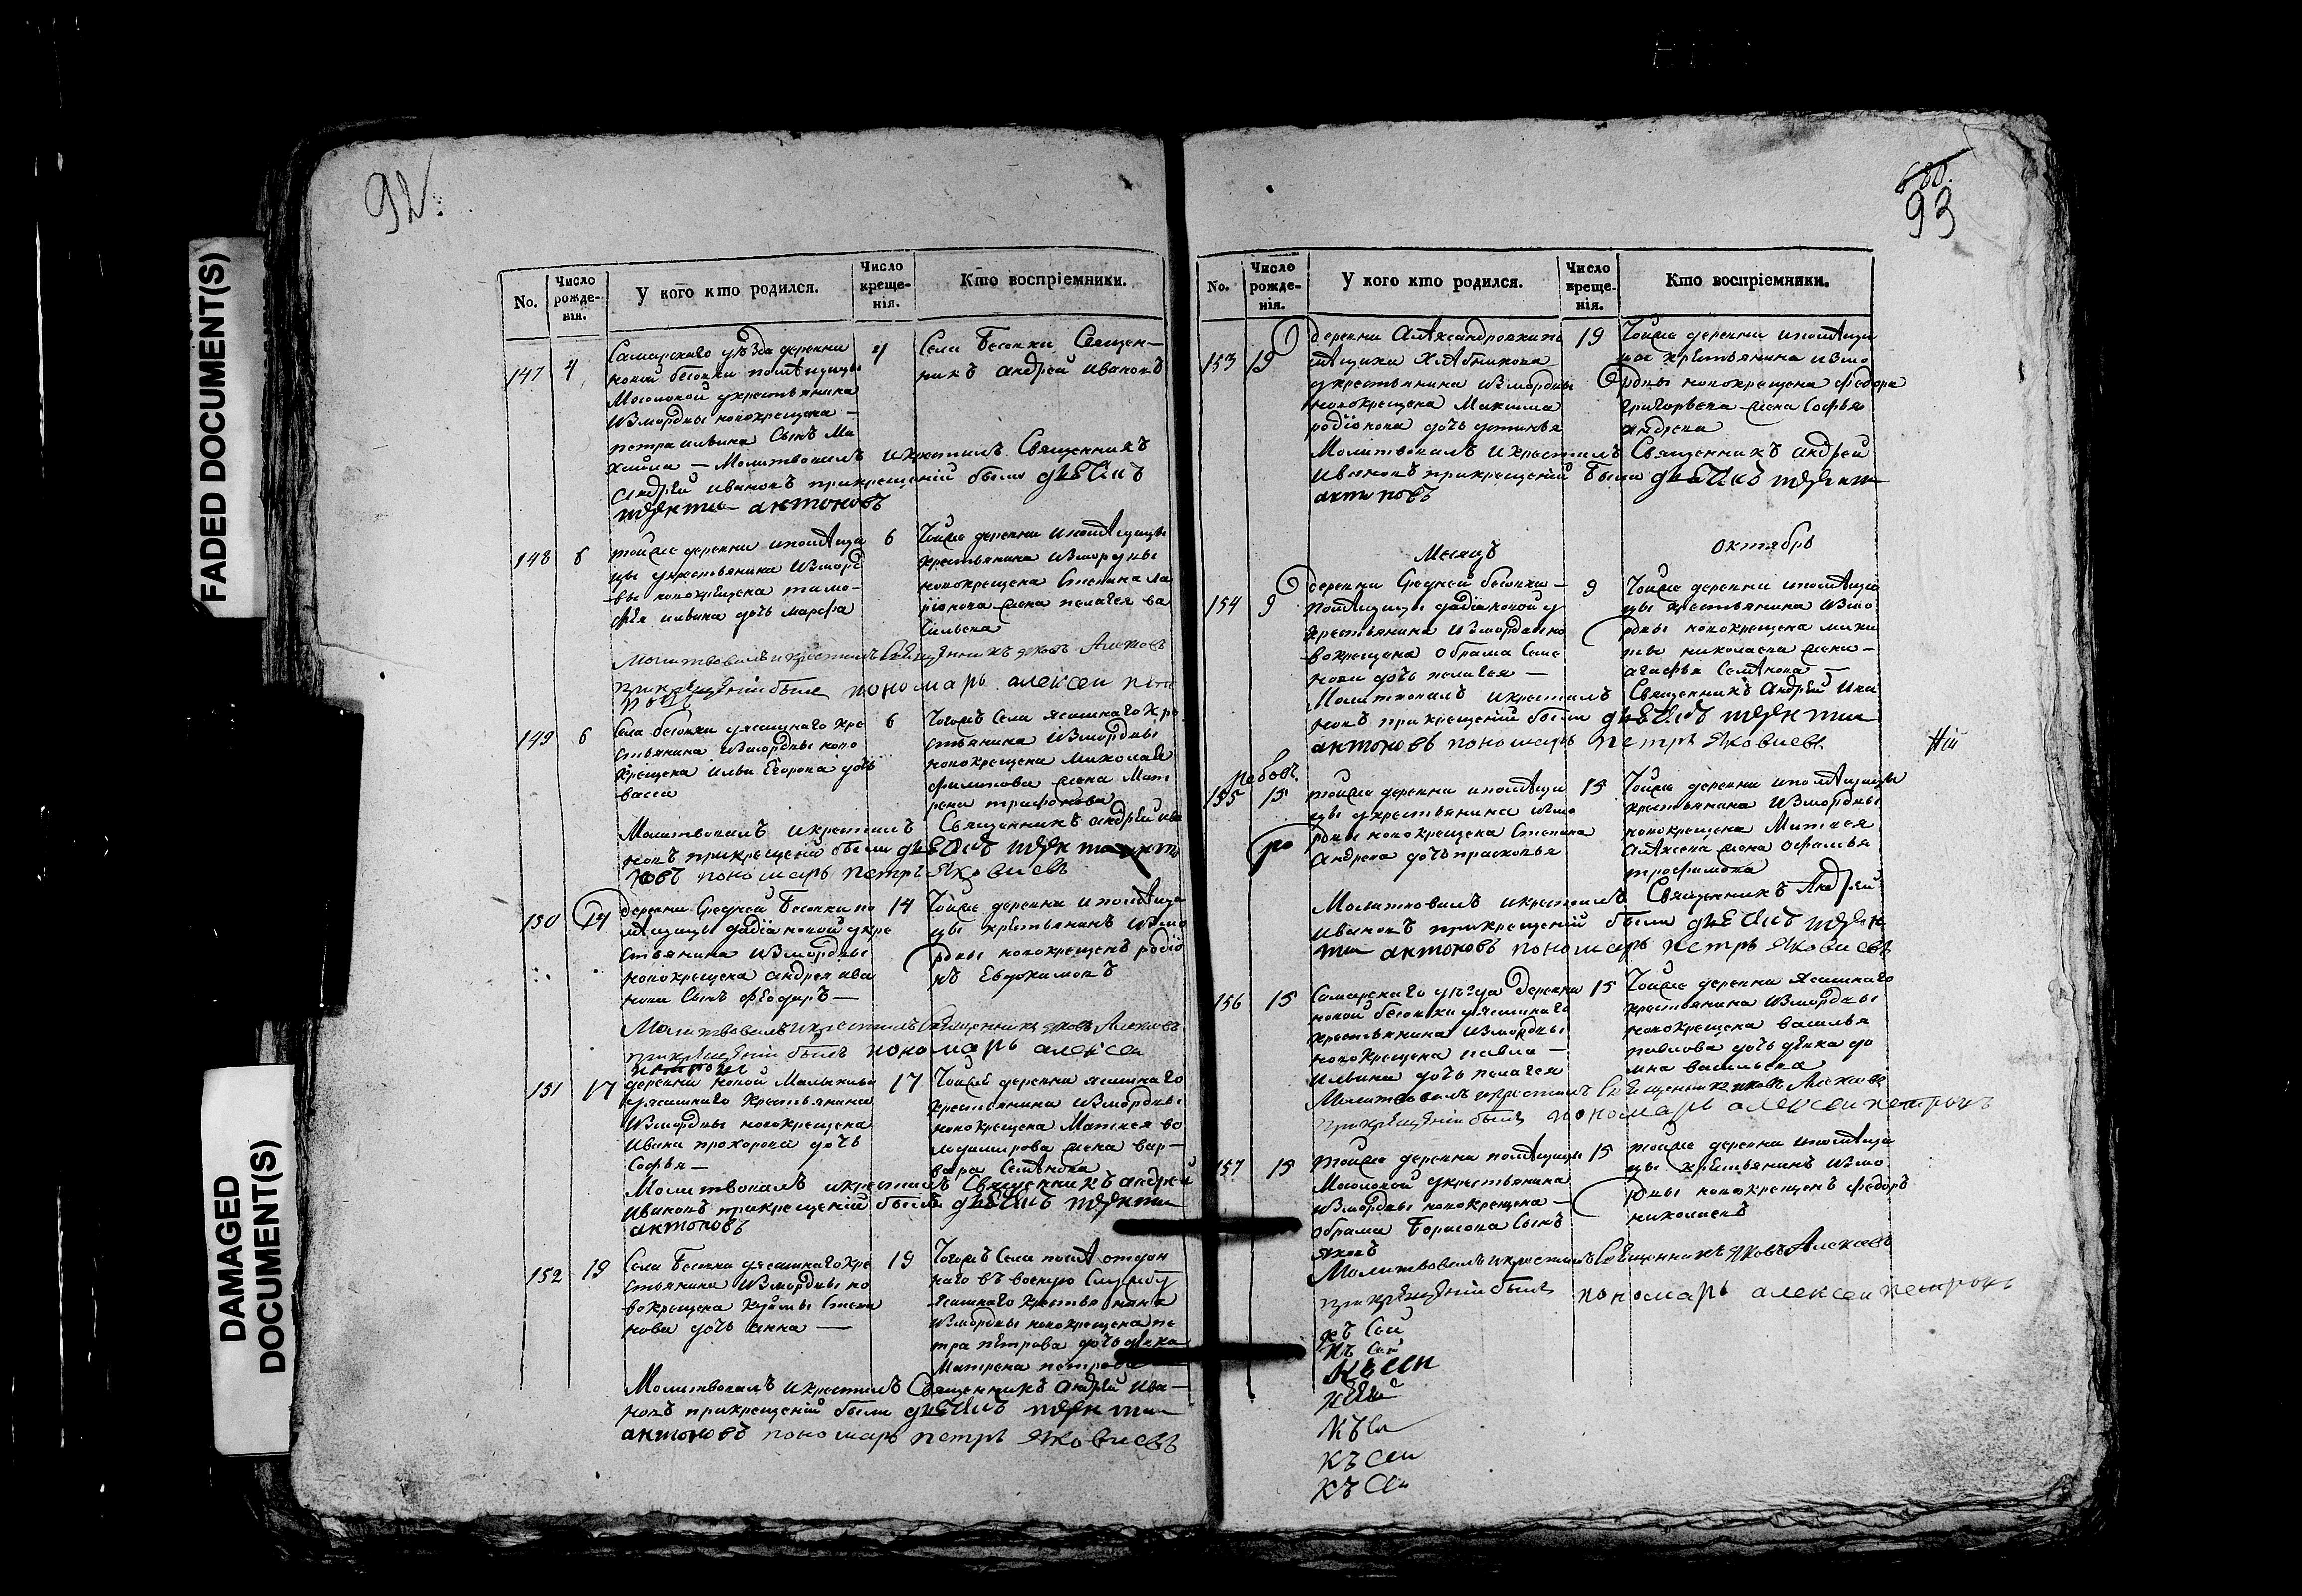 FADED DOCUMENT(S)
DAMAGED
DOCUMENT(S)
92
No.
Число рожде-нія.
У кого кто родился.
Число креще-нія.
Кто воспріемники.
147
4
Самарскаго уѣзда деревни
новой бесовки помѣщицы
Мосоловой укрестьянина
Измордвы новокрещена —
петра ильина Сынъ Ми
хаила — Молитвовалъ икрестилъ Священникъ
андрей ивановъ прикрещеніи были
антоновъ
4
Села Бесовки Священ—
никъ андрей ивановъ
148
6
тойже деревни ипомѣщи
цы укрестьянина Измор
вы новокрещена тимо—
фея ильина дочь марфа
6
Тойже деревни ипомѣщицы
крестьянина Измордвы
новокрещена Степана ла
ріонова жена пелагея ва
сильева
Молитвовалъ икрестилъ Священникъ яковъ
прикрещеніи былъ пономарь алексеи
149
6
Села бесовки уясашнаго кре
стьянина Измордвы ново
крещена ильи Егорова дочь
васса
6
Тогожъ Села ясашнаго кре
стьянина Измордвы
новокрещена Николая
филипова жена Мат
рена трифонова
Молитвовалъ икрестилъ Священникъ андрей ива
новъ прикрещеніи были
новъ пономарь петръ яковлевъ
150
14
деревни Средней Бесовки по
мѣщицы фадіановой укре
стьянина Измордвы
новокрещена андрея ива
нова Сынъ феодоръ —
14
Тойже деревни ипомѣщи
цы крестьянинъ Измо
рдвы новокрещенъ родіо
нъ Евдокимовъ
Молитвовалъ икрестилъ Священникъ яковъ
прикрещеніи былъ пономарь алексеи
151
17
деревни новой Малыклы
уясашнаго крестьянина
Измордвы новокрещена
ивана прохорова дочь
Софья —
17
Тойже деревни ясашнаго
крестьянина Измордвы
новокрещена Матвея во
лодимирова жена вар—
вара Семѣнова
Молитвовалъ икрестилъ Священникъ андрей
ивановъ прикрещеніи былъ
антоновъ
152
19
Села Бесовки уясашнаго кре
стьянина Измордвы но
вокрещена кузмы Степа
нова дочь анна —
19
Тогожъ Села отдан
наго въ военую Службу
ясашнаго крестьянина
Измордвы новокрещена пе
тра петрова дочь девка
Матрена петрова
Молитвовалъ икрестилъ Священникъ андрей ива—
новъ прикрещеніи были
антоновъ пономарь петръ яковлевъ
680.
93
No.
Число рожде-нія.
У кого кто родился.
Число креще-нія.
Кто воспріемники.
153
19
деревни Александровки по
мѣщика Хлѣбникова
укрестьянина Измордвы
новокрещена Максима
родіонова дочь устинья
19
Тойже деревни ипомѣщи
ка крестьянина измо
рдвы новокрещена федора
григорьева жена Софья
андреева
Молитвовалъ икрестилъ Священникъ андрей
ивановъ прикрещеніи были
антоновъ
Месяцъ
октябрь
154
9
деревни Средней бесовки —
помѣщицы фадіановой у
крестьянина Измордвы но
вокрещена обрама Семе
нова дочь пелагея —
9
Тойже деревни ипомѣщи
цы крестьянина Измо
рдвы новокрещена ники
ты николаева жена —
агафья Семѣнова —
Молитвовалъ икрестилъ Священникъ андрей ива
новъ прикрещеніи были
антоновъ пономарь петръ яковлевъ
155
15
тойже деревни ипомѣщи
цы укрестьянина измо
рдвы новокрещена Степана
андреева дочь прасковья
15
Тойже деревни ипомѣщицы
крестьянина Измордвы
новокрещена Матвея
алѣксеева жена офимья
трофимова
Молитвовалъ икрестилъ Священникъ андрей
ивановъ прикрещеніи были
антоновъ пономарь петръ яковлевъ
156
15
Самарскаго уѣзда деревни
новой бесовки уясашнаго
крестьянина Измордвы
новокрещена павла —
ильина дочь пелагея
15
Тойже деревни ясашнаго
крестьянина Измордвы
новокрещена василья
павлова дочь девка до
мна васильева
Молитвовалъ икрестилъ Священникъ яковъ
прикрещеніи былъ пономарь алексеи петровъ
157
15
Тойже деревни помѣщицы
Мосоловой укрестьянина
Измордвы новокрещена —
обрама Борисова Сынъ
яковъ
15
тойже деревни ипомѣщи
цы крестьянинъ Измо
рдвы новокрещенъ федоръ
николаевъ
Молитвовалъ икрестилъ Священникъ яковъ
прикрещеніи былъ пономарь алексеи петровъ
къ Сей
къ Сей
къ Сей